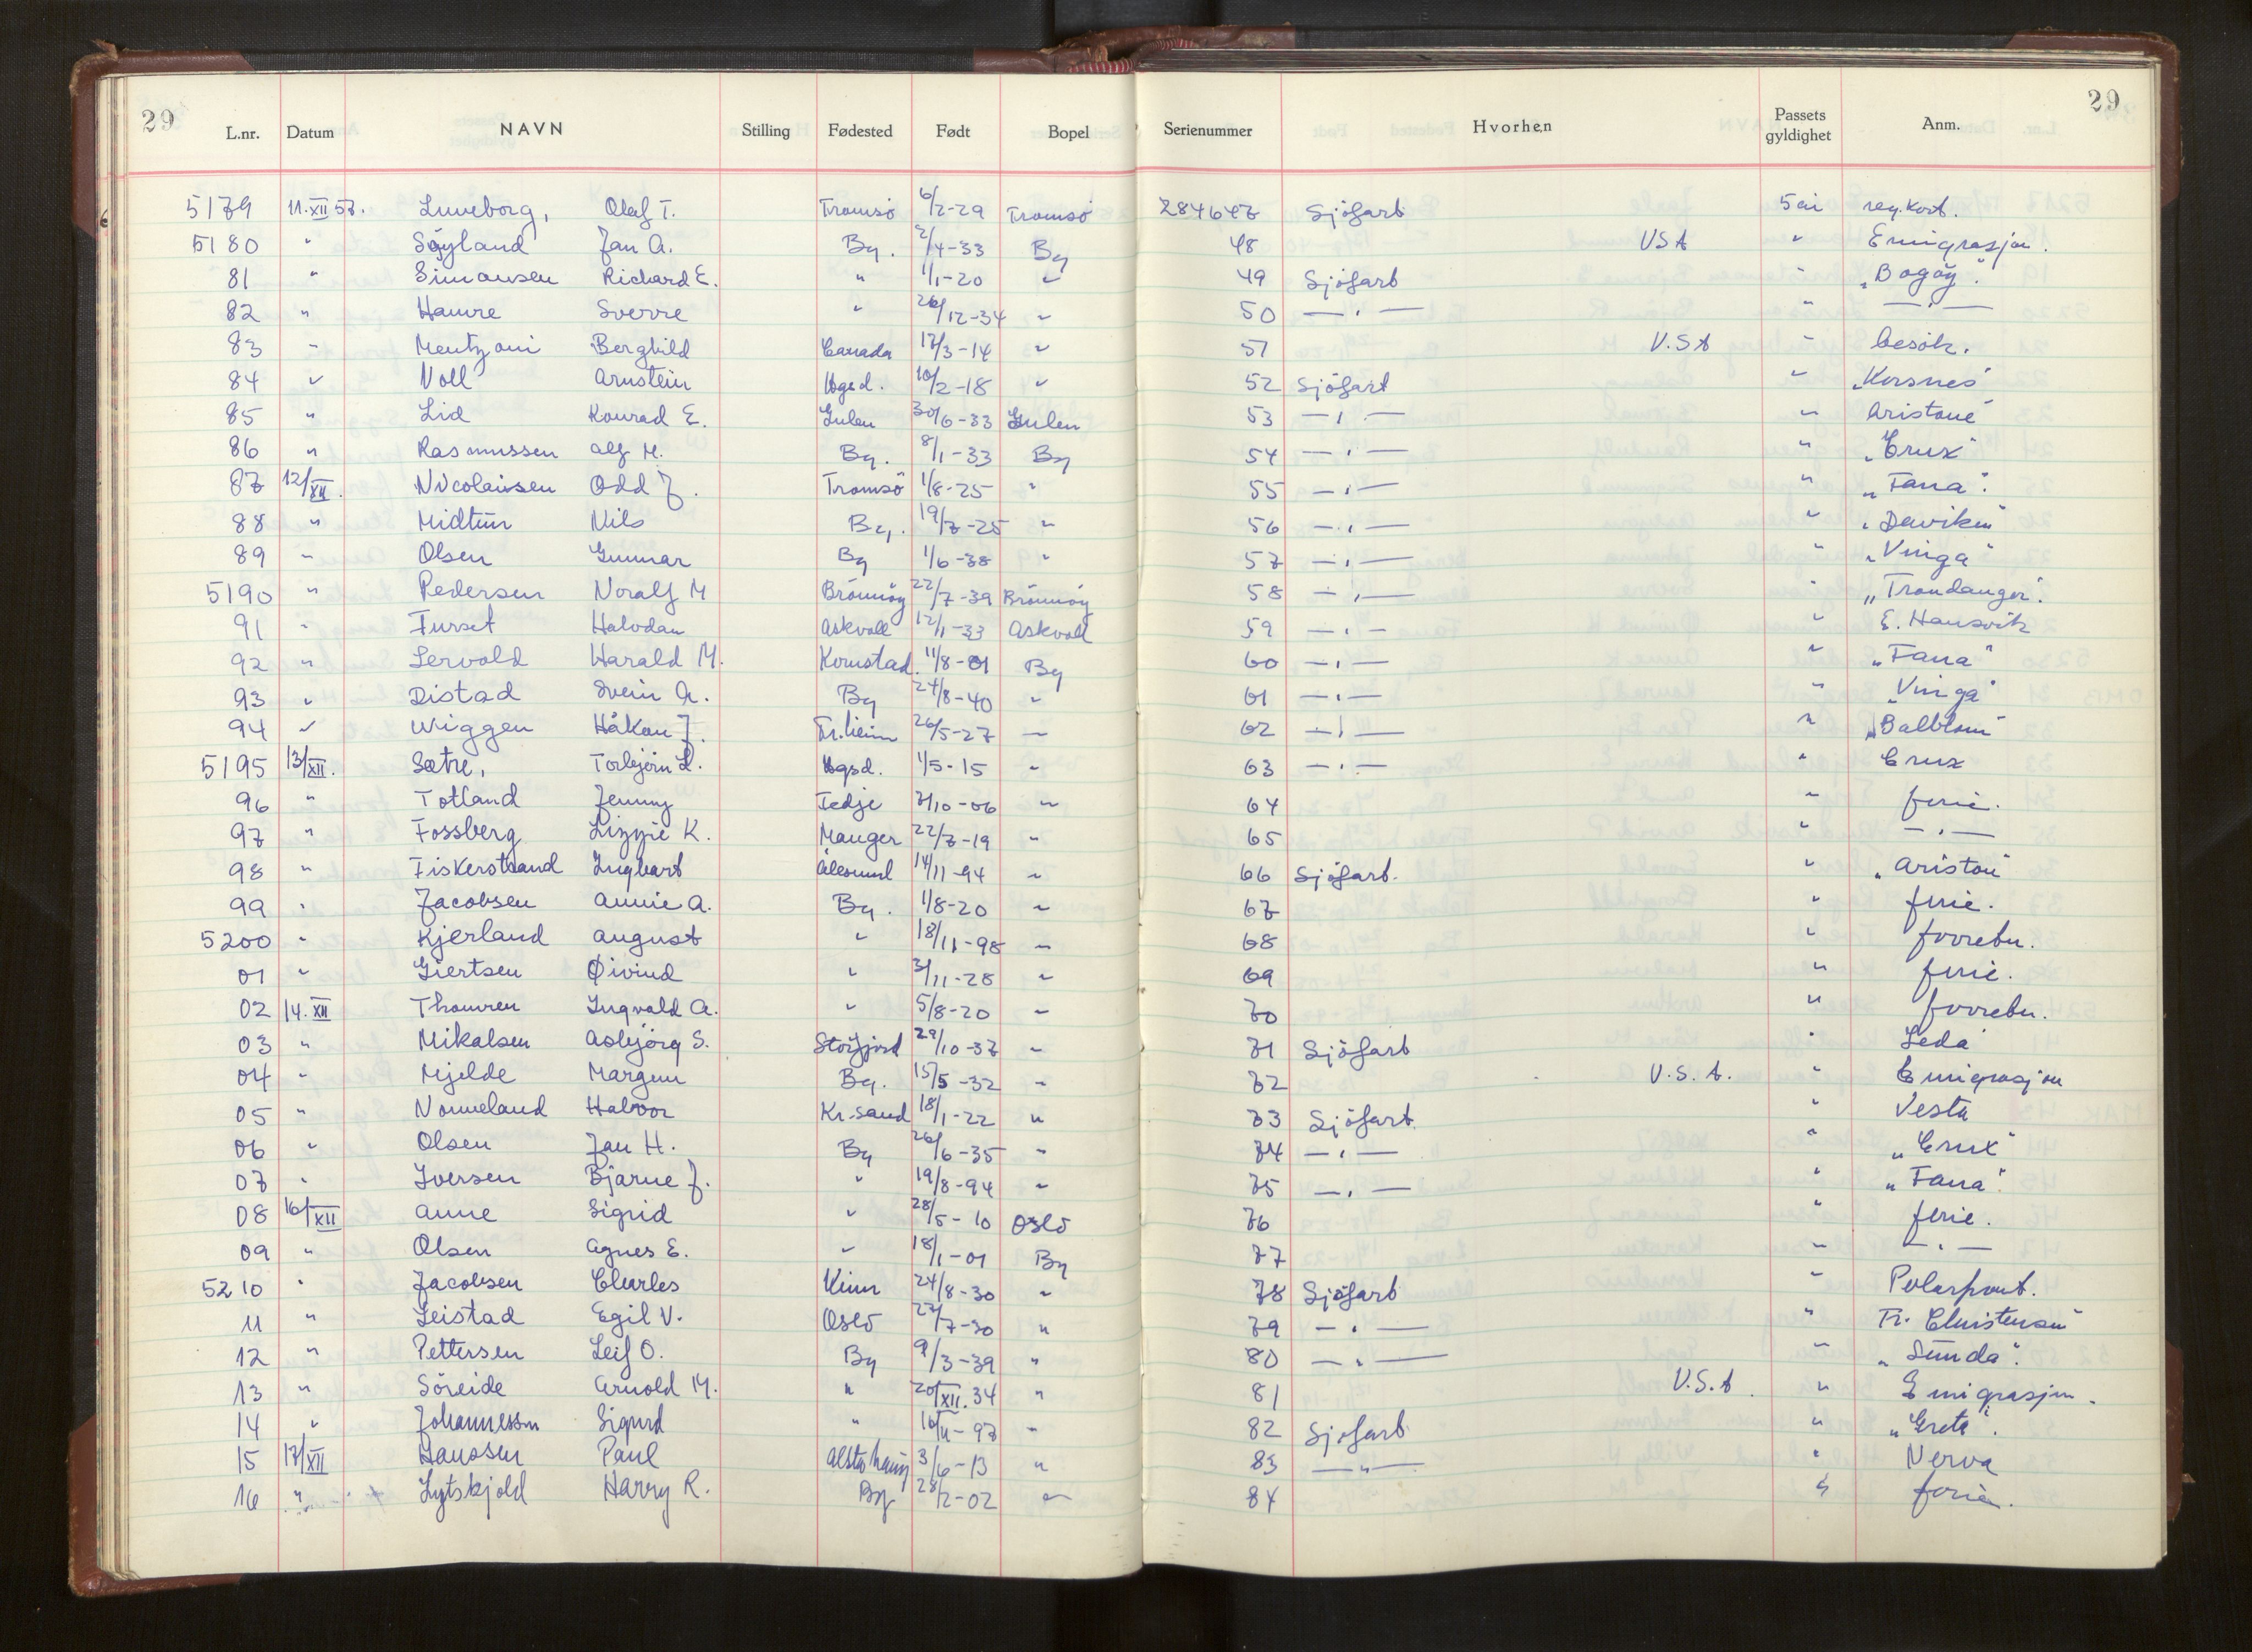 29 29
L.nr. Datum NAVN Stilling Fødested Født Bopel Serienummer Hvorhen Passets gyldighet Anm.
5179 11.XII 57. Luneborg, Olaf T. Tromsö 6/2-29 Tromsö 284647 Sjöfart 5 år reg.kort.
5180 " Söyland Jan A. Bg. 2/4-33 Bg 48 USA " Emigrasjon.
81 " Simonsen Richard E. " 1/1-20 " 49 Sjöfart " "Bogöy".
82 " Hamre Sverre " 26/12-34 " 50 — " — " — " —
83 " Mentzoni Berghild Canada 17/3-14 " 51 U.S.A " besök.
84 " Voll Arnstein Hgsd. 10/2-18 " 52 Sjöfart " "Korsnes"
85 " Lid Konrad E. Gulen 30/6-33 Gulen 53 — " — " Aristone
86 " Rasmussen Alf M. Bg. 8/1-33 Bg 54 — " — " "Crux"
87 12/XII. Nicolaisen Odd J. Tromsö 1/8-25 " 55 — " — " "Fana".
88 " Midtun Nils Bg. 19/7-25 " 56 — " — " "Daviken"
89 " Olsen Gunnar Bg 1/6-38 " 57 — " — " "Vinga"
5190 " Pedersen Noralf M Brönnöy 22/7-39 Brönnöy 58 — " — " "Trondanger".
91 " Furset Halvdan Askvoll 12/1-33 Askvoll 59 — " — " E. Hansvik
92 " Lervold Harald M. Kornstad 11/8-01 Bg 60 — " — " "Fana"
93 " Distad Svein A. Bg 24/8-40 " 61 — " — " "Vinga"
94 " Wiggen Håkon J. Tr.heim 26/5-27 " 62 — " — " "Balblom"
5195 13/XII. Sætre, Torbjörn L. Hgsd. 1/5-15 " 63 — " — " Crux
96 " Totland Jenny Fedje 7/10-06 " 64 " ferie.
97 " Fossberg Lizzie K. Manger 22/7-19 " 65 " — " —
98 " Fiskerstrand Ingbart Ålesund 14/11-94 " 66 Sjöfart. " "Ariston"
99 " Jacobsen Annie A. Bg. 1/8-20 " 67 " ferie.
5200 " Kjerland August " 18/11-98 " 68 " forretn.
01 " Giertsen Øivind " 3/11-28 " 69 " ferie.
02 14.XII Ingvald A. " 5/8-20 " 70 " forretn.
03 " Mikalsen Asbjörg S. Storfjord 29/10-37 " 71 Sjöfart " Leda
04 " Mjelde Margun Bg. 15/5-32 " 72 U.S.A. " Emigrasjon
05 " Nonneland Halvor Kr.sand 18/1-22 " 73 Sjöfart " Vesta
06 " Olsen Jan H. Bg 26/6-35 " 74 — " — " "Crux"
07 " Iversen Bjarne J. " 19/8-94 " 75 — " — " "Fana".
08 16/XII Anne Sigrid " 28/5-10 Oslo 76 " ferie.
09 " Olsen Agnes E. " 18/1-01 Bg 77 " — " —
5210 " Jacobsen Charles Kinn 24/8-30 " 78 Sjöfart " Polarfront.
11 " Leistad Egil V. Oslo 27/7-30 " 79 — " — " Fr. Christensen
12 " Pettersen Leif O. Bg 9/3-39 " 80 — " — " "Sunda".
13 " Söreide Arnold M. " 20/XII.34 " 81 U.S.A. " Emigrasjon.
14 " Johannessen Sigurd " 16/11-97 " 82 Sjöfart " "Grete".
15 17/XII Hanssen Paul Alstahaug 3/6-13 " 83 — " — " Nerva
16 " Lytskjold Harry R. Bg 28/2-02 " 84 " ferie.